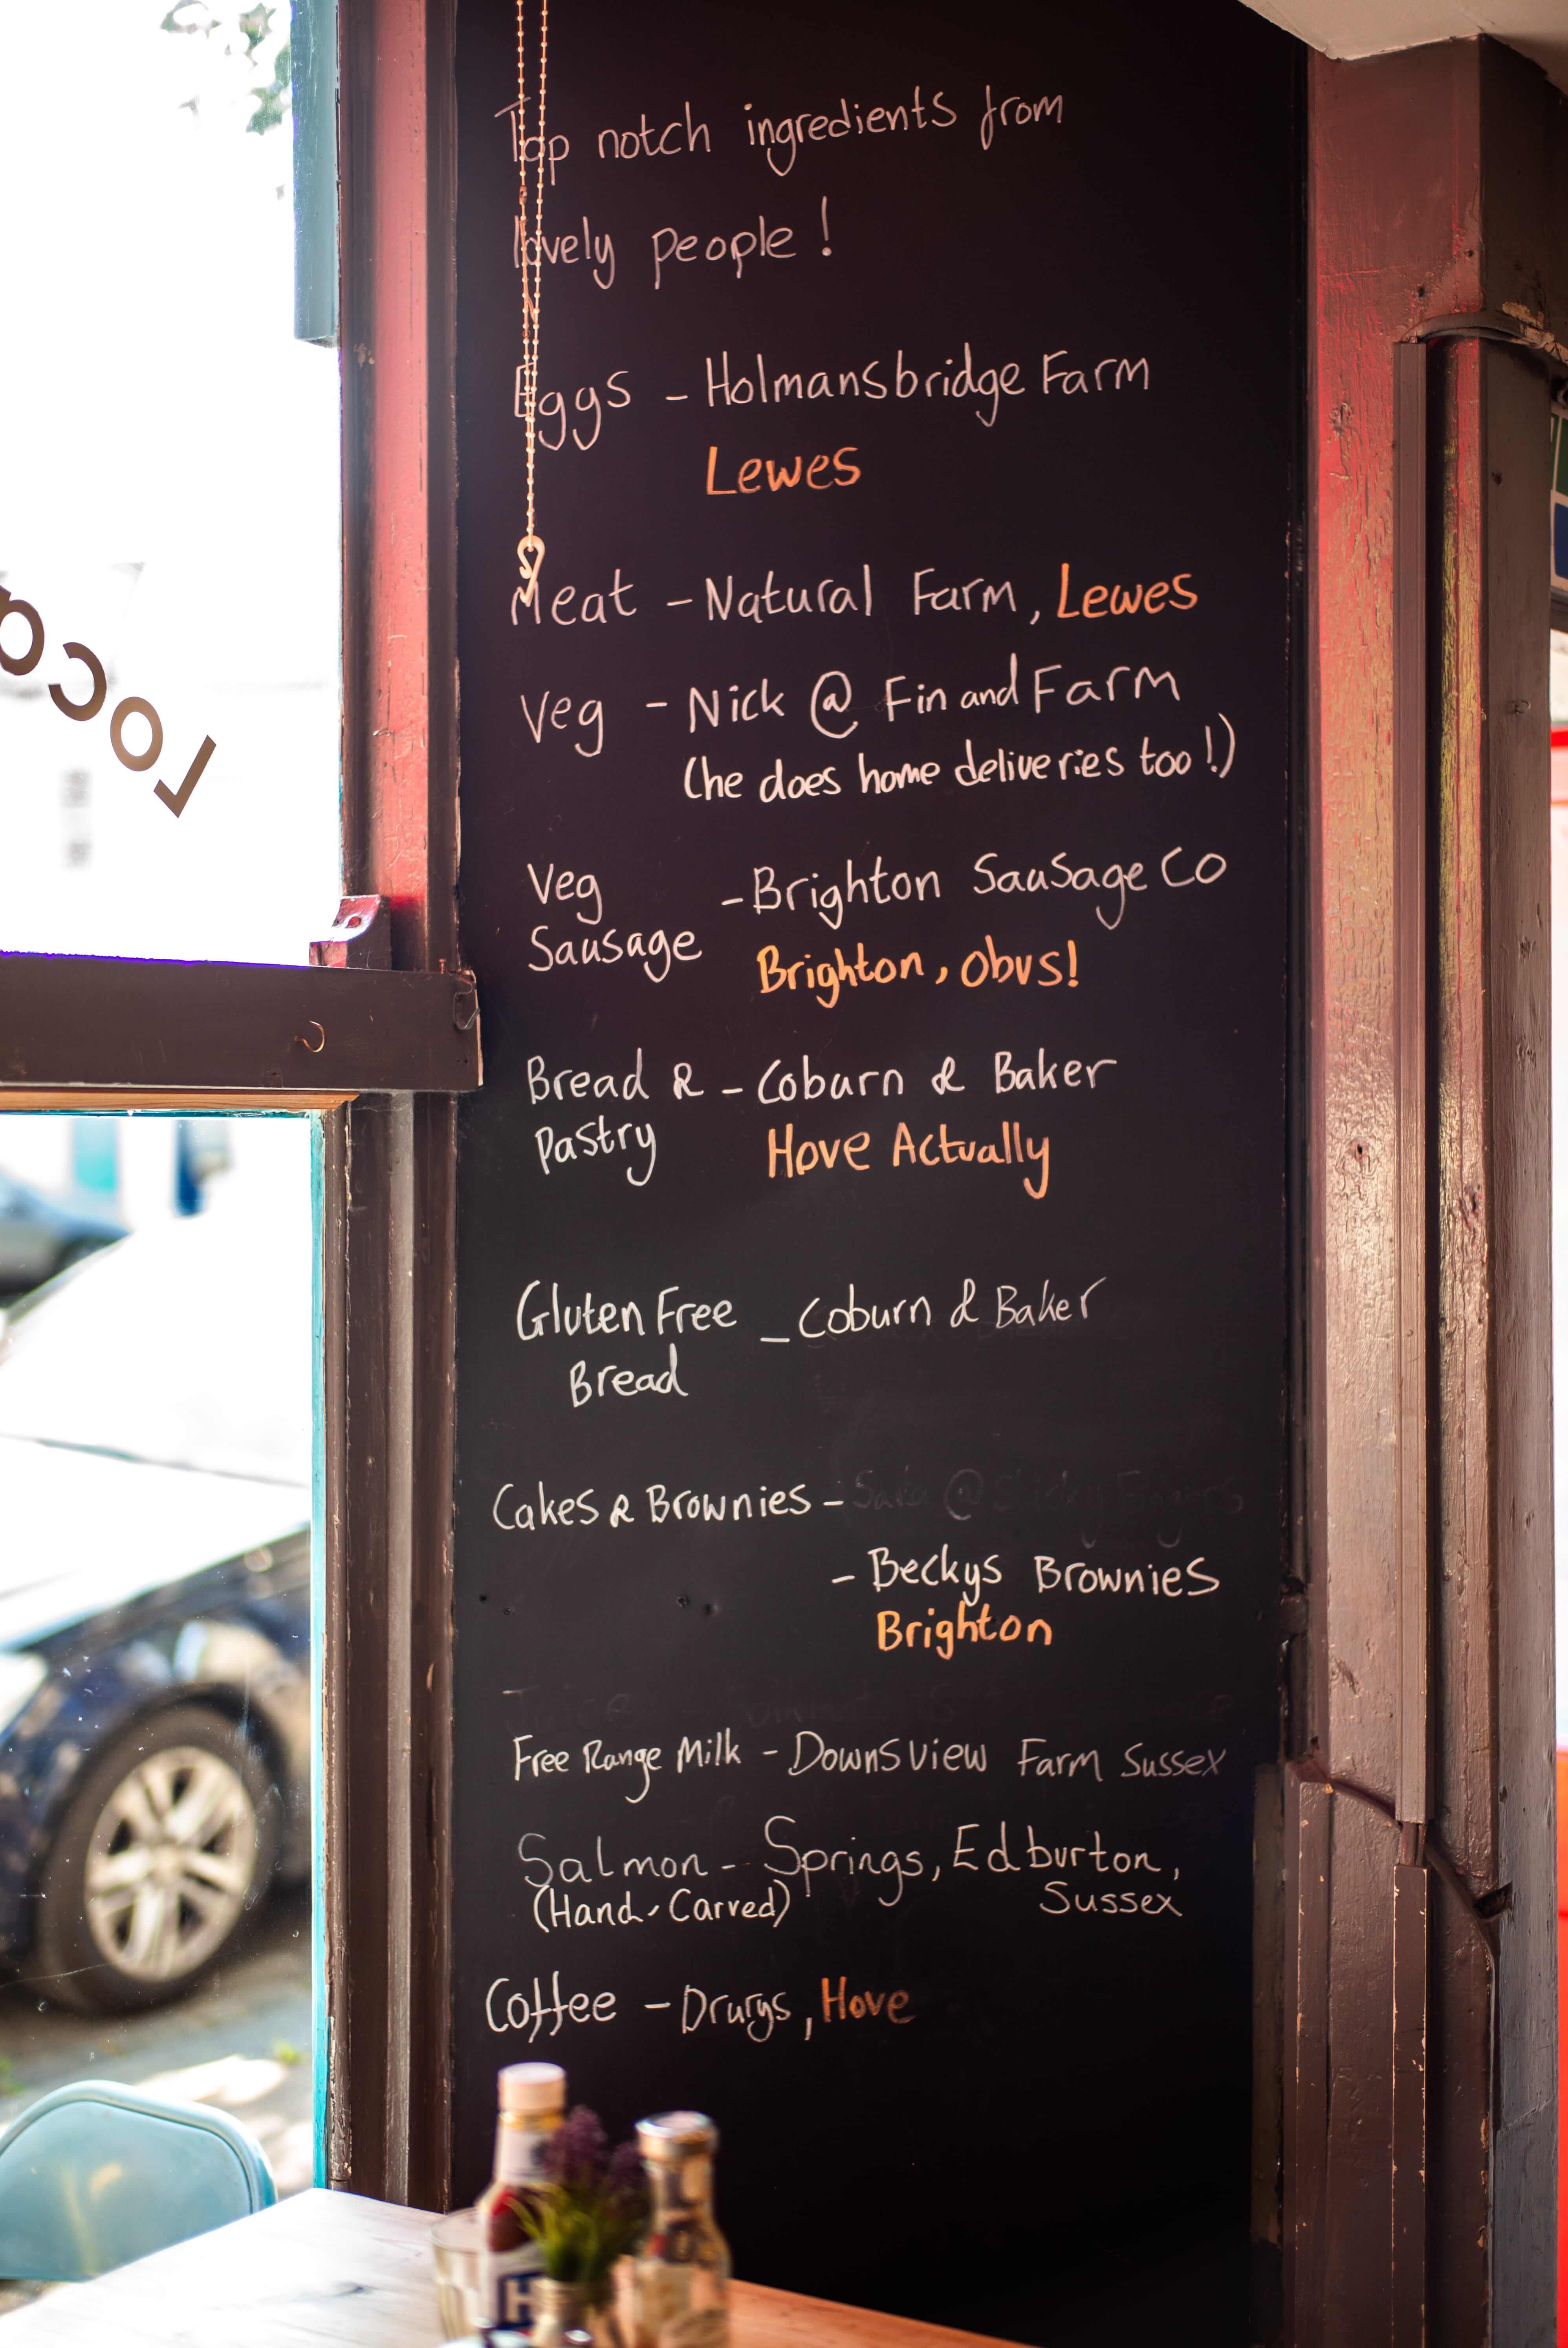 Top notch ingredients from
lovely people!
Eggs - Holmansbridge Farm
Lewes
Meat - Natural Farm, Lewes
Veg - Nick @ Fin and Farm
(he does home deliveries too!)
Veg
Sausage - Brighton Sausage Co
Brighton, Obvs!
Bread & - Coburn & Baker
Pastry Hove Actually
Gluten Free - Coburn & Baker
Bread
Cakes & Brownies -
- Beckys Brownies
Brighton
Free Range Milk - Downsview Farm Sussex
Salmon - Springs, Edburton,
(Hand-Carved) Sussex
Coffee - Drurys, Hove